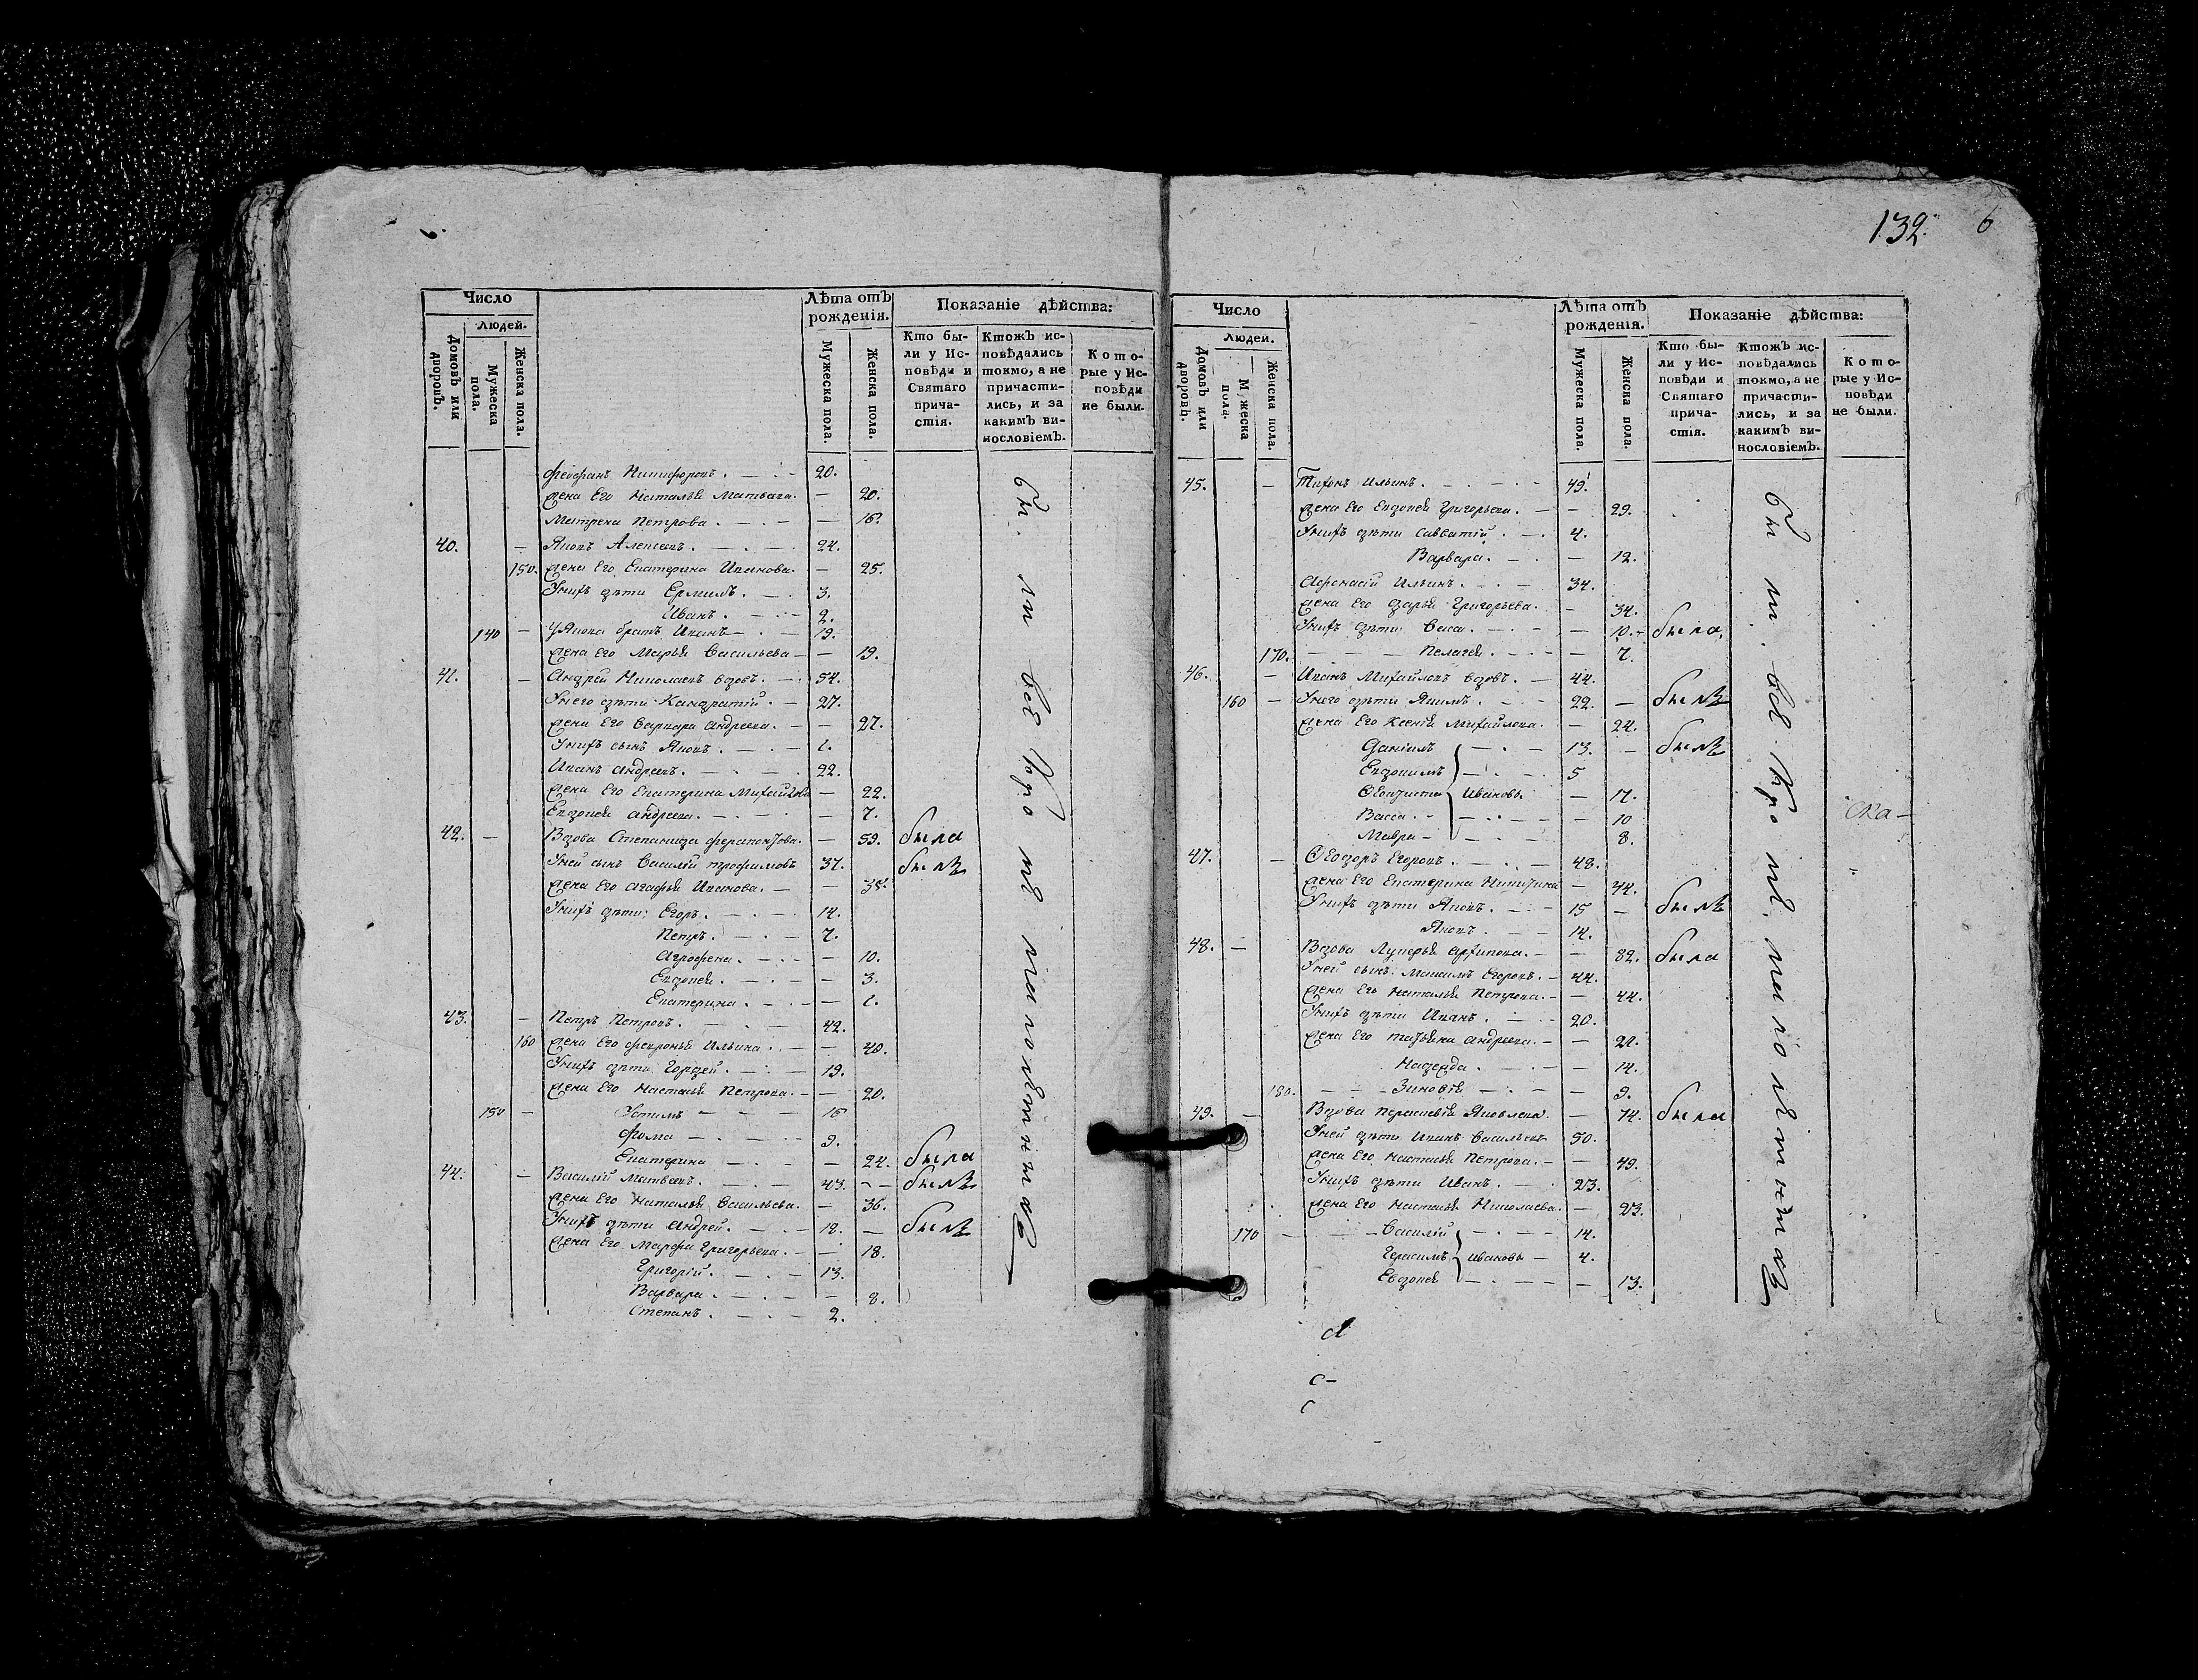 Число
Людей.
Домовъ или дворовъ.
Мужеска пола.
Женска пола.
Лѣта отъ рожденія.
Мужеска пола.
Женска пола.
Показаніе дѣйства:
Кто были у Исповѣди и Святаго причастія.
Ктожъ исповѣдались токмо, а не причастились, и за какимъ винословіемъ.
Которые у Исповѣди не были.
Феофанъ Никифоровъ. 20.
жена Его Наталья Матвеева. — 20.
Матрена Петрова. — 16.
40. — Яковъ Алексеевъ. 24.
150. жена Его Екатерина Иванова. — 25.
Унихъ дѣти Ермилъ. 3.
Иванъ. 2.
140 — У Якова братъ Иванъ — 19.
жена Его Марья Васильева — — 19.
41. — Андрей Николаевъ вдовъ. 54.
Унего дѣти Кандратій. — 27.
жена Его Варвара Андреева. — — 27.
Унихъ сынъ Яковъ. — 1.
Иванъ Андреевъ. 22.
жена Его Екатерина Михайлова — 22.
Евдокея Андреева. — 7.
42. — Вдова Степанида Ферапонтова. — 59. была
Уней сынъ Василій Трофимовъ 37. былъ
жена Его Агафья Иванова. — — 35.
Унихъ дѣти: Егоръ. 14.
Петръ. 7.
Агрофена. — 10.
Евдокея. — 3.
Екатерина. — 1.
43. — Петръ Петровъ. 42.
160 жена Его Февронья Ильина. — 40.
Унихъ дѣти Гордей. 19.
жена Его Настасья Петрова. — — 20.
150 — Устимъ — 16
Фома — 9.
Екатерина — — 24. была
44. — Василій Матвеевъ. 43. — былъ
жена Его Наталья Васильева. — 36.
Унихъ дѣти Андрей. 18. — былъ
жена Его Марфа Григорьева. — — 18.
Григорій. 13.
Варвара. — 8.
Степанъ. 2.
были всѣ кромѣ малолѣтныхъ
132. 6
Число
Людей.
Домовъ или дворовъ.
Мужеска пола.
Женска пола.
Лѣта отъ рожденія.
Мужеска пола.
Женска пола.
Показаніе дѣйства:
Кто были у Исповѣди и Святаго причастія.
Ктожъ исповѣдались токмо, а не причастились, и за какимъ винословіемъ.
Которые у Исповѣди не были.
45. — Тихонъ Ильинъ. 49.
жена Его Евдокея Григорьева. — — 29.
Унихъ дѣти Савватій. 4.
Варвара. — 12.
Афонасій Ильинъ. 34.
жена Его Дарья Григорьева. — 34.
Унихъ дѣти Васа. — 10. была,
170. — — Пелагея. — 7.
46. — Иванъ Михайловъ вдовъ. — 44.
160 — Унего дѣти Якимъ. 22. — былъ
жена Его Ксенія Михайлова. — 24.
Даніилъ 13. — былъ
Евдокимъ 5
Феоктиста Ивановы — 17.
Васса. — 10
Мавра — — 8.
47. — Феодоръ Егоровъ. 48.
жена Его Екатерина Никитина — 44.
Унихъ дѣти Яковъ. 15 — былъ
Яковъ. 14.
48. — Вдова Лукерья Архипова. — — 82. была
Уней сынъ Максимъ Егоровъ. — 44.
жена Его Наталья Петрова. — — 44.
Унихъ дѣти Иванъ. 20.
жена Его Татьяна Андреева. — — 21.
Надежда. — 14.
180. — — Зиновія — 9.
49. — Вдова Парасковія Яковлева. — 74. была
Уней дѣти Иванъ Васильевъ 50.
жена Его Настасья Петрова. — — 49.
Унихъ дѣти Иванъ. 23.
жена Его Настасья Николаева. — 23.
170 — Василій 14.
Герасимъ Ивановы — 4.
Евдокея — 13.
были всѣ кромѣ малолѣтныхъ